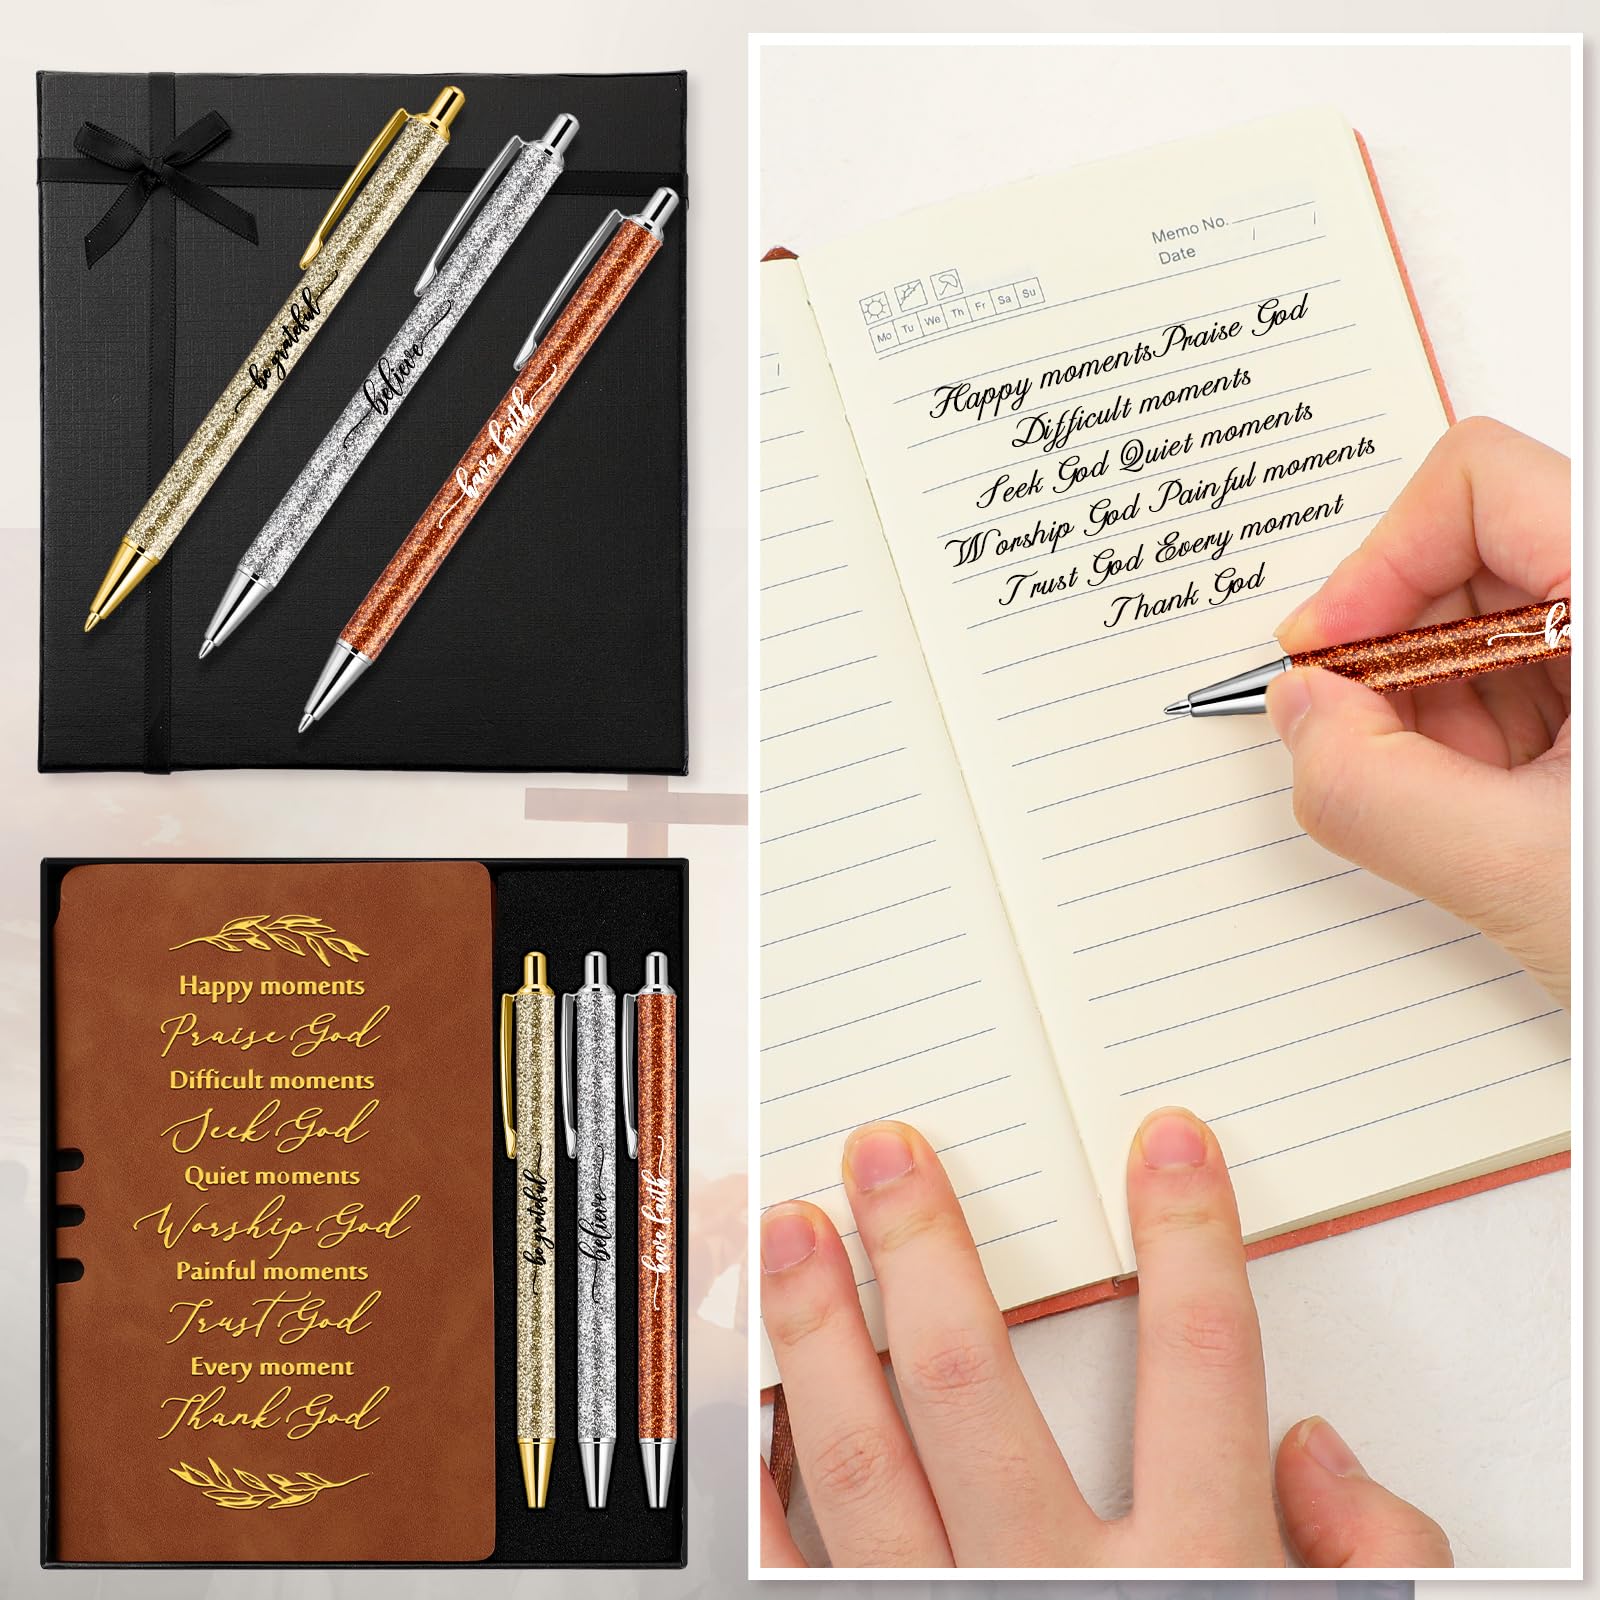 be grateful
believe
have faith
Happy moments
Praise God
Difficult moments
Seek God
Quiet moments
Worship God
Painful moments
Trust God
Every moment
Thank God
be grateful
believe
have faith
Memo No.
Date / /
Mo Tu We Th Fr Sa Su
Happy moments Praise God
Difficult moments
Seek God Quiet moments
Worship God Painful moments
Trust God Every moment
Thank God
ha
/